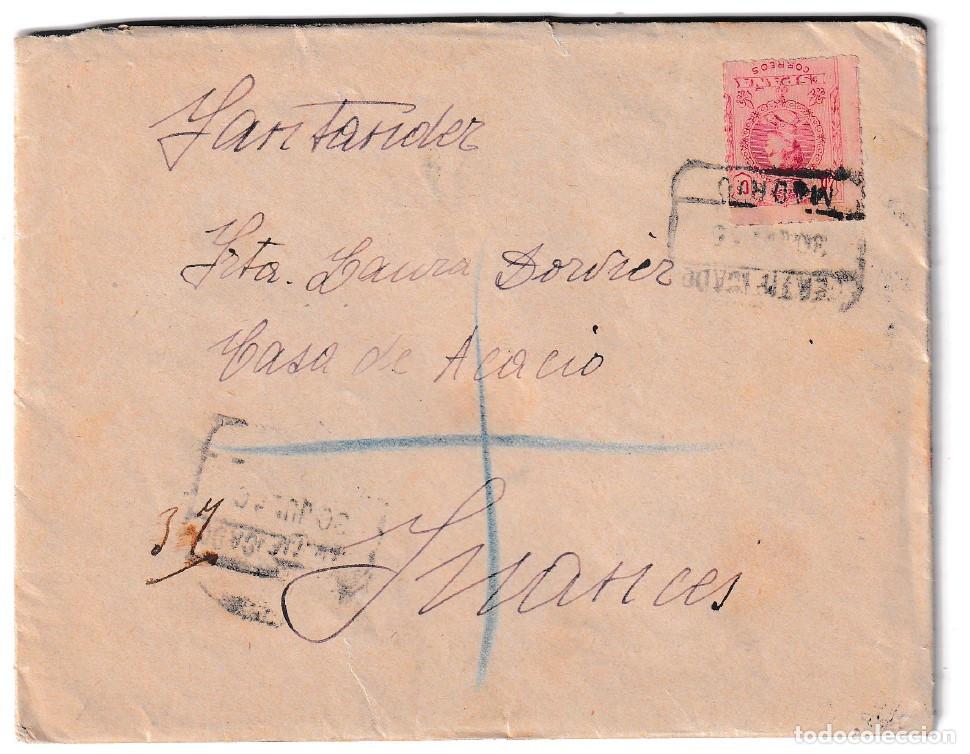 Santander
CORREOS
MADRID
30
CERTIFICADO
Srta. Laura Dorvier
Casa de Acacio
30 JUL
CERTIFICADO
37
Suances
todocoleccion